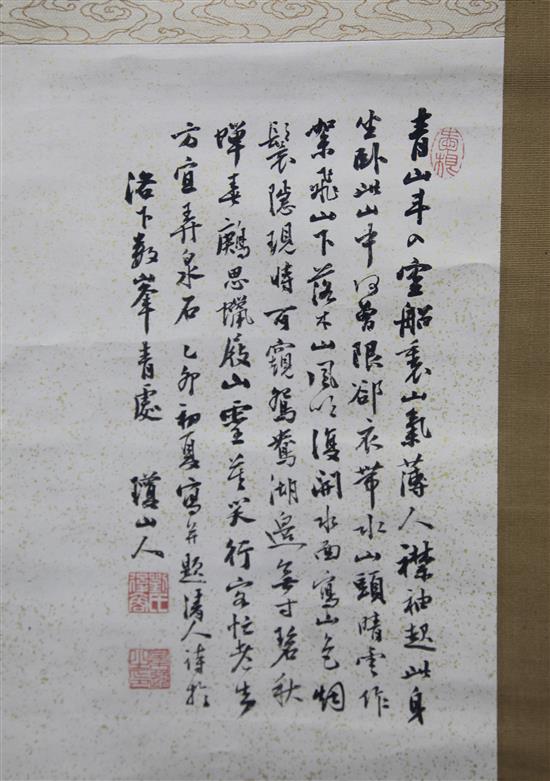 青山斗入空船裏山氣薄人襟袖起此身
坐卧此山中何曾限卻衣帶水山頭晴雲作
絮飛山下落木山風吹復開水面寫山色烟
鬟隱現時可窺鴛鴦湖邊無寸碧秋
蟬春鷓思蠟屐山靈莫笑行客忙老去
方宜弄泉石 乙卯初夏寫并題清人詩於
洛下數峯青處 瓊山人